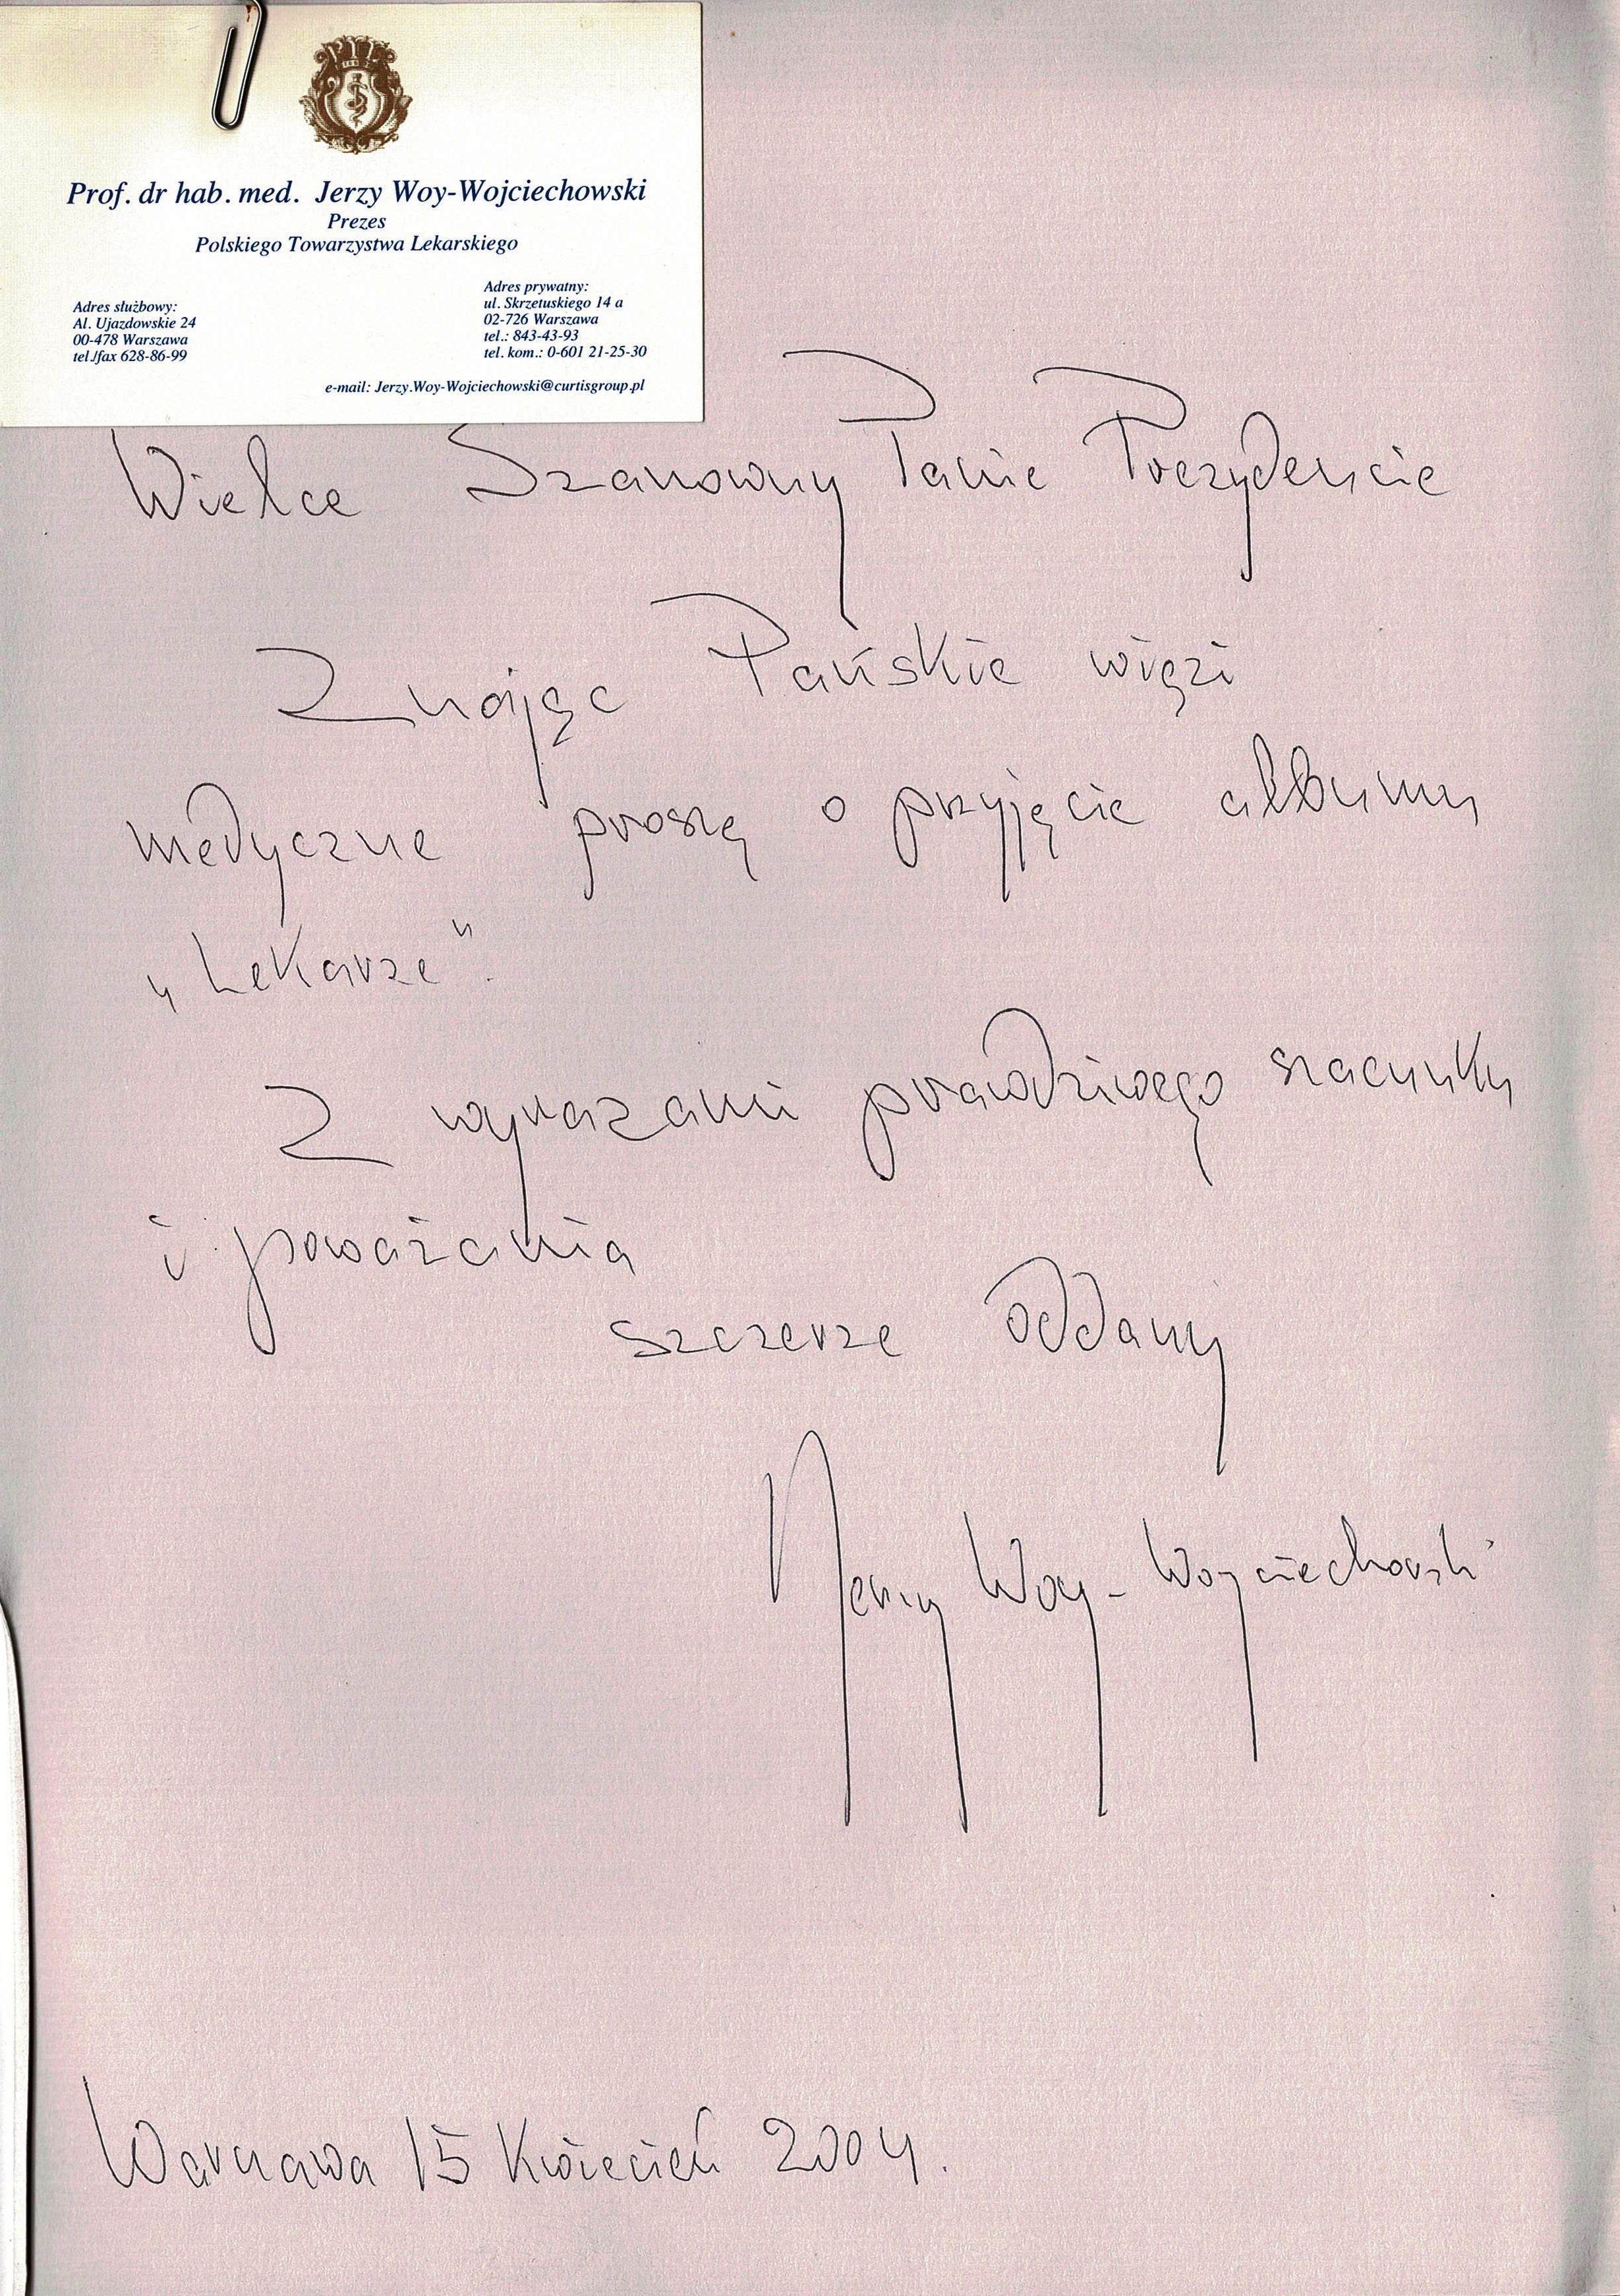 PTL
Prof. dr hab. med. Jerzy Woy-Wojciechowski
Prezes
Polskiego Towarzystwa Lekarskiego
Adres służbowy:
Al. Ujazdowskie 24
00-478 Warszawa
tel./fax 628-86-99
Adres prywatny:
ul. Skrzetuskiego 14 a
02-726 Warszawa
tel.: 843-43-93
tel. kom.: 0-601 21-25-30
e-mail: Jerzy.Woy-Wojciechowski@curtisgroup.pl
Wielce Szanowny Panie Prezydencie
Znając Pańskie więzi
medyczne proszę o przyjęcie albumu
„Lekarze".
Z wyrazami prawdziwego szacunku
i poważania
szczerze oddany
Jerzy Woy-Wojciechowski
Warszawa 15 kwiecień 2004.